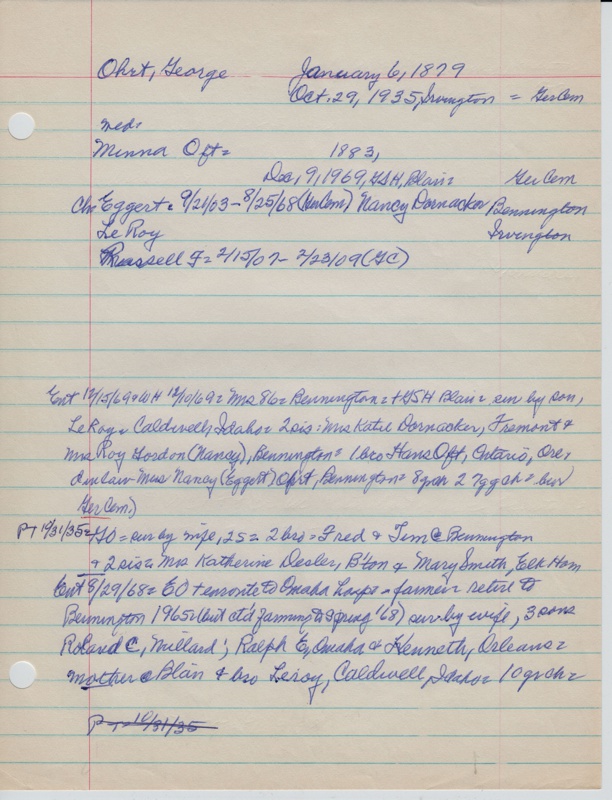 Ohrt, George January 6, 1879
Oct. 29, 1935, Irvington = GerCem
wed:
Minna Oft = 1883,
Dec, 9, 1969, GSH, Blair = GerCem
Ch: Eggert = 9/21/03 - 8/25/68 (GerCem) Nancy Dornacker Bennington
LeRoy Irvington
Russell F = 2/15/07 - 2/23/09 (GC)
Ent 12/15/69 & WH 12/10/69 = Mrs 86 = Bennington = + GSH Blair = sur by son,
LeRoy = Caldwell, Idaho = 2 sis: Mrs Katie Dornacker, Fremont &
Mrs Roy Gordon (Nancy), Bennington = 1 bro Hans Oft, Ontario, Ore,
d in law Mrs Nancy (Eggert) Ohrt, Bennington = 8 grch 27 ggch = bur
GerCem.)
PT 10/31/35 = GO = sur by wife, 2 S = 2 bro = Fred & Tim @ Bennington
& 2 sis = Mrs Katherine Desler, B'ton & Mary Smith, Elk Horn
Ent 8/29/68 = EO + enroute to Omaha Hosp - farmer retired to
Bennington 1965 (but ctd farming to spring '68) sur by wife, 3 sons
Roland C, Millard; Ralph E, Omaha & Kenneth, Orleans =
mother @ Blair & bro Leroy, Caldwell, Idaho = 10 grch =
PT = 10/31/35